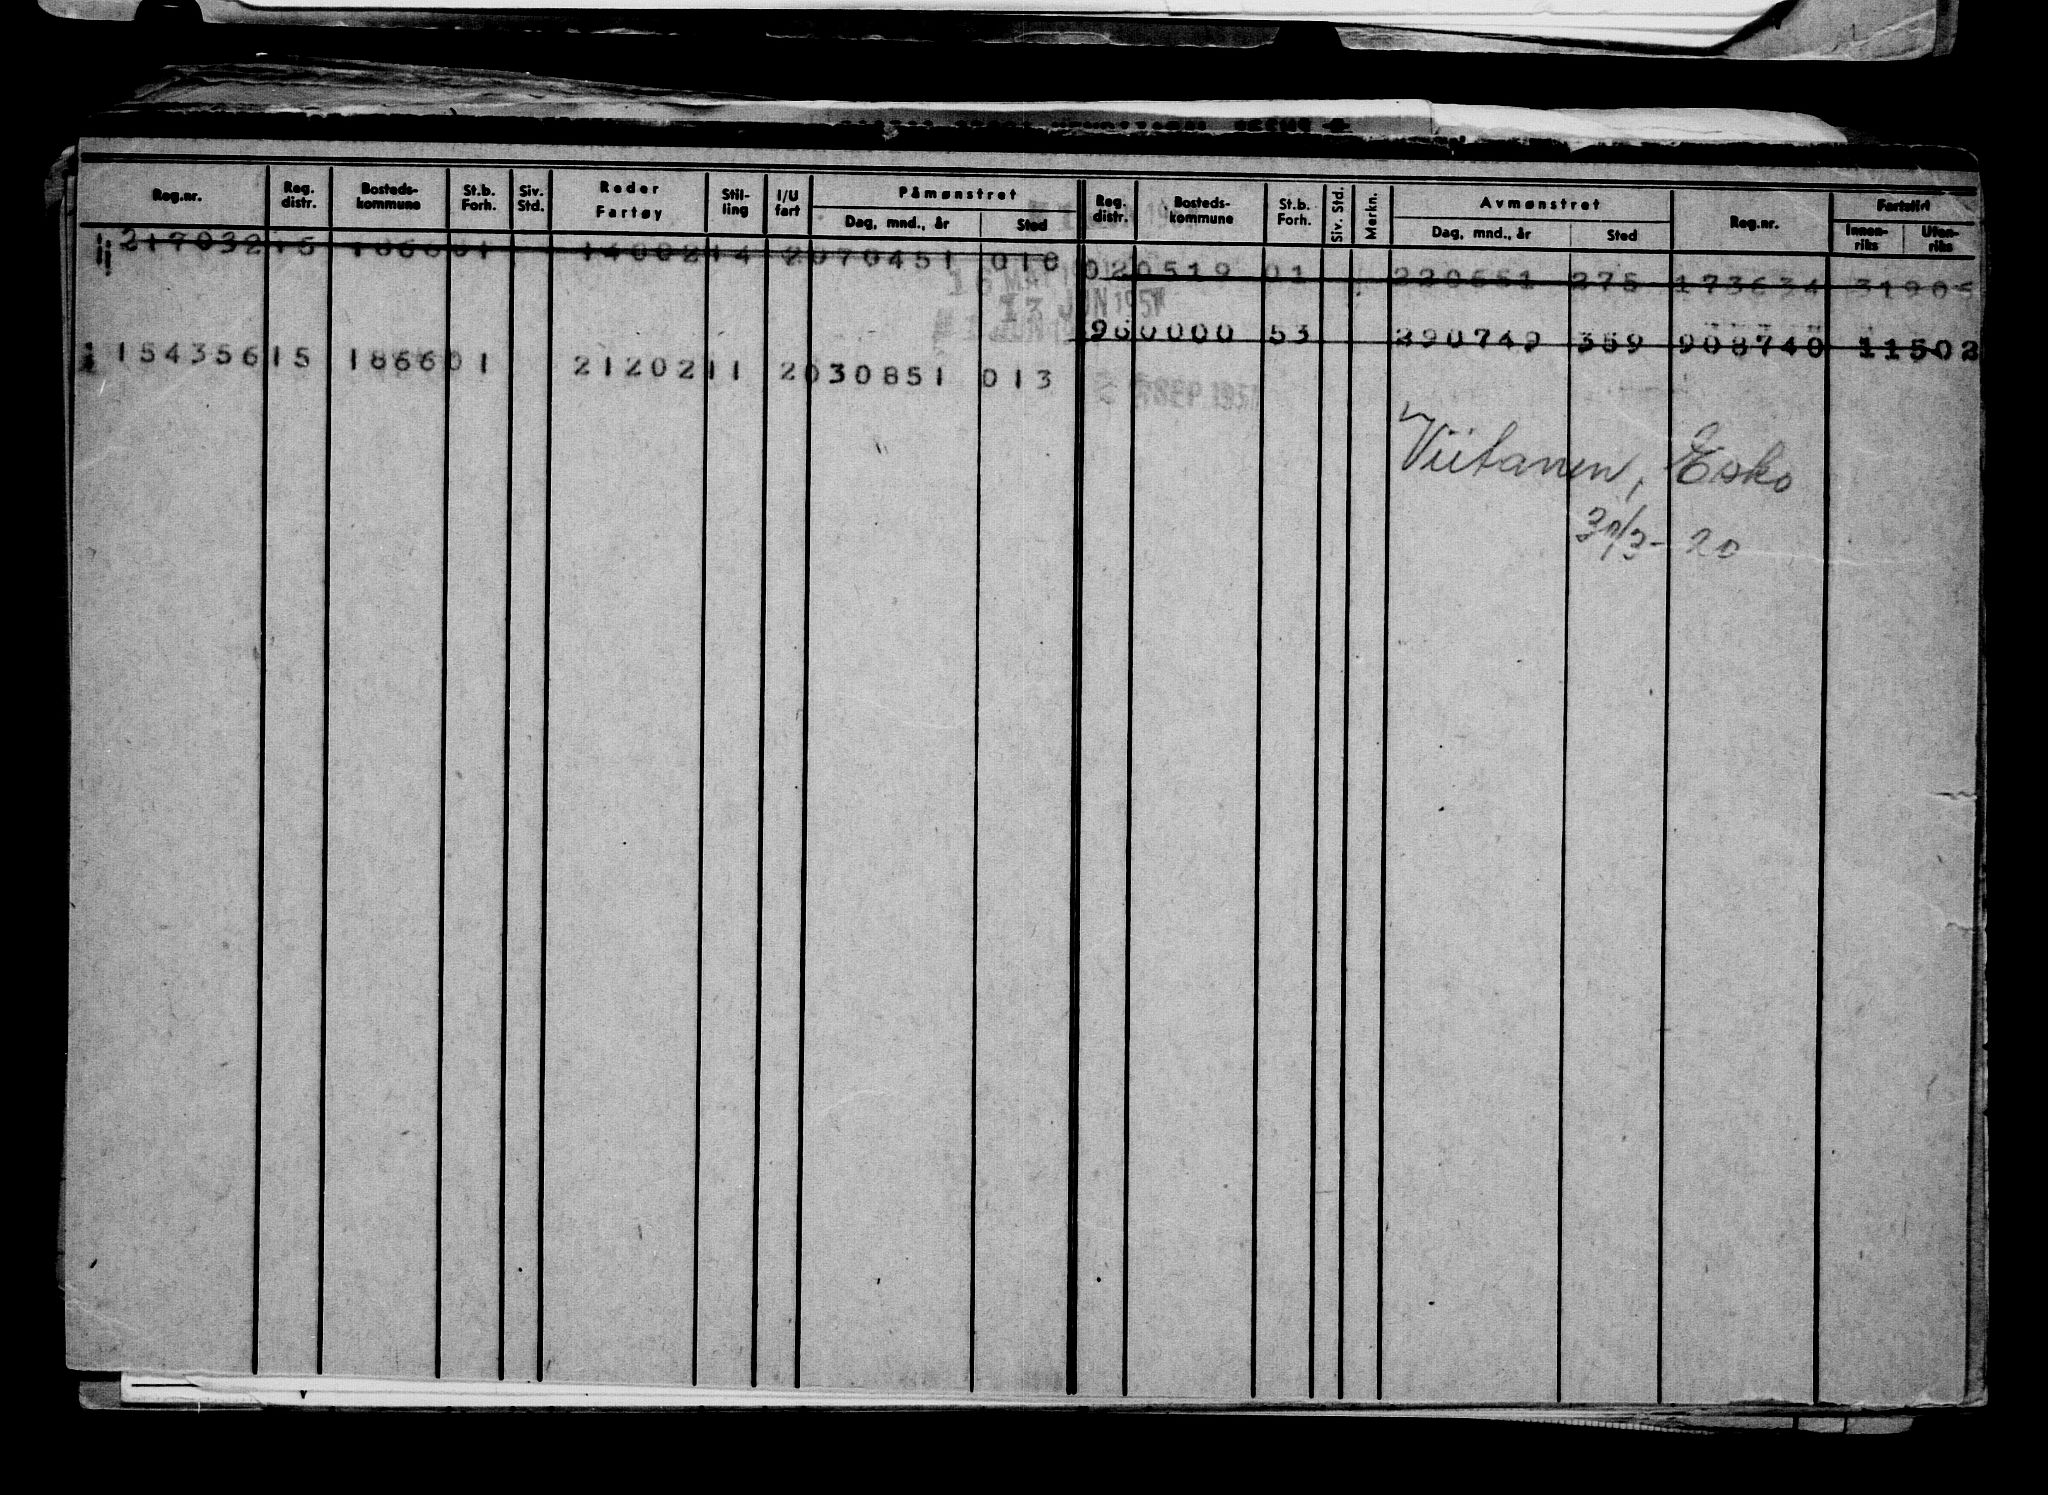 Reg.nr. Reg. distr. Bosteds-kommune St.b. Forh. Siv. Std. Reder Fartøy Stil-ling I/U fart Påmønstret Dag, mnd., år Sted Reg. distr. Bosteds-kommune St.b. Forh. Siv. Std. Merkn. Avmønstret Dag, mnd., år Sted Reg.nr. Fartstid Innen-riks Uten-riks
217032 15 1866 01 14002 14 2 070451 018
02 0519 01 220651 275 173634 31905
16 MAI
13 JUN 1951
96 0000 53 290749 359 908740 11502
154356 15 1866 01 21202 11 2 030851 013
SEP 1951
Viitanen, Esko
/3- 20